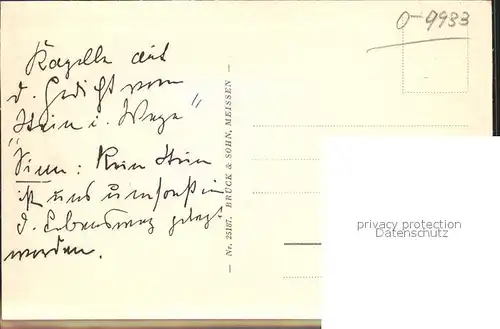 0-9933
Kapelle aus
d. Gedicht vom
"Stein i. Wege"
Sinn: Kein Stein
ist uns umsonst in
d. Lebensweg gelegt
worden.
— Nr. 25187. BRÜCK & SOHN, MEISSEN —
privacy protection
Datenschutz